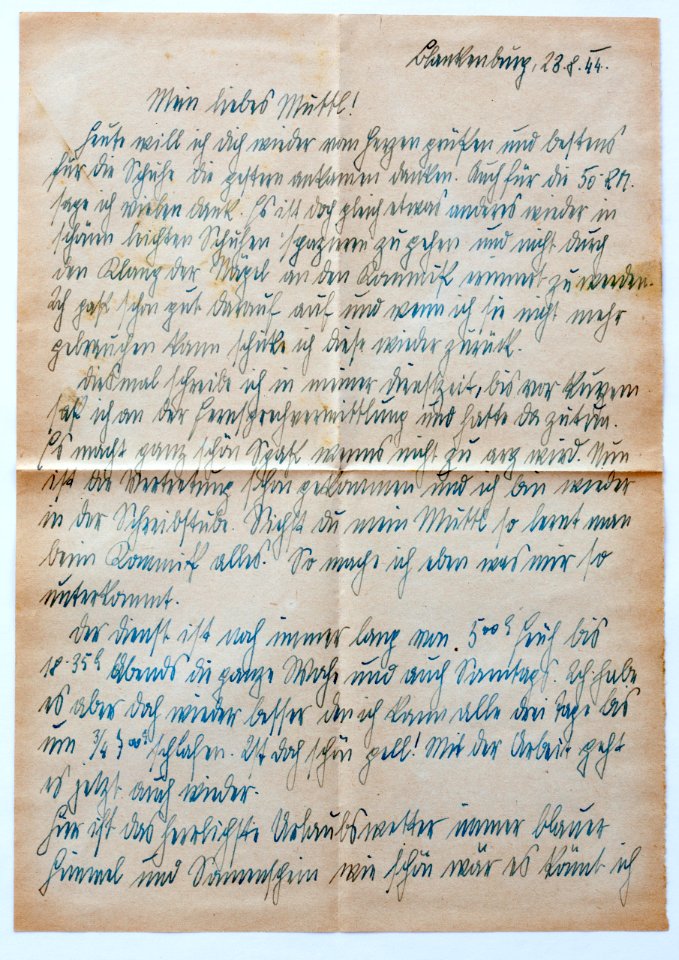 Blankenburg, 23.8.44.
Mein liebes Muttl!
Heute will ich dich wieder von Herzen grüßen und bestens
für die Schuhe die gestern ankamen danken. Auch für die 50 RM.
sage ich vielen dank. Es ist doch gleich etwas anderes wieder in
schönen leichten Schuhen spazieren zu gehen und nicht durch
den Klang der Nägel an den Kommiß erinnert zu werden.
Ich paß schon gut darauf auf und wenn ich sie nicht mehr
gebrauchen kann schicke ich diese wieder zurück.
diesmal schreibe ich in meiner dienstzeit, bis vor kurzem
saß ich an der Fernsprechvermittlung und hatte da zutun.
Es macht ganz schön Spaß wenns nicht zu arg wird. Nun
ist die Vertretung schon gekommen und ich bin wieder
in der Schreibstube. Siehst du mein Muttl so lernt man
beim Kommiß alles. So mache ich eben was mir so
unterkommt.
der dienst ist noch immer lang von 5⁰⁰ h früh bis
18.35 h Abends die ganze Woche und auch Sonntags. Ich habe
es aber doch wieder besser den ich kann alle drei tage bis
um ¾ 7⁰⁰ h schlafen. Ist doch schön gell! Mit der Arbeit geht
es jetzt auch wieder.
Hier ist das herrlichste Urlaubswetter immer blauer
Himmel und Sonnenschein wie schön wär es könnt ich